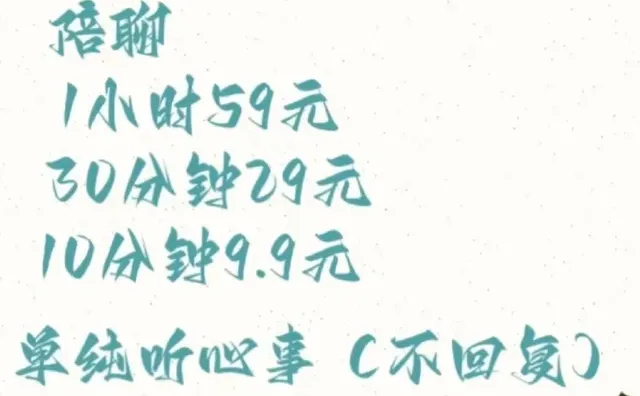 陪聊
1小时59元
30分钟29元
10分钟9.9元
单纯听心事（不回复）